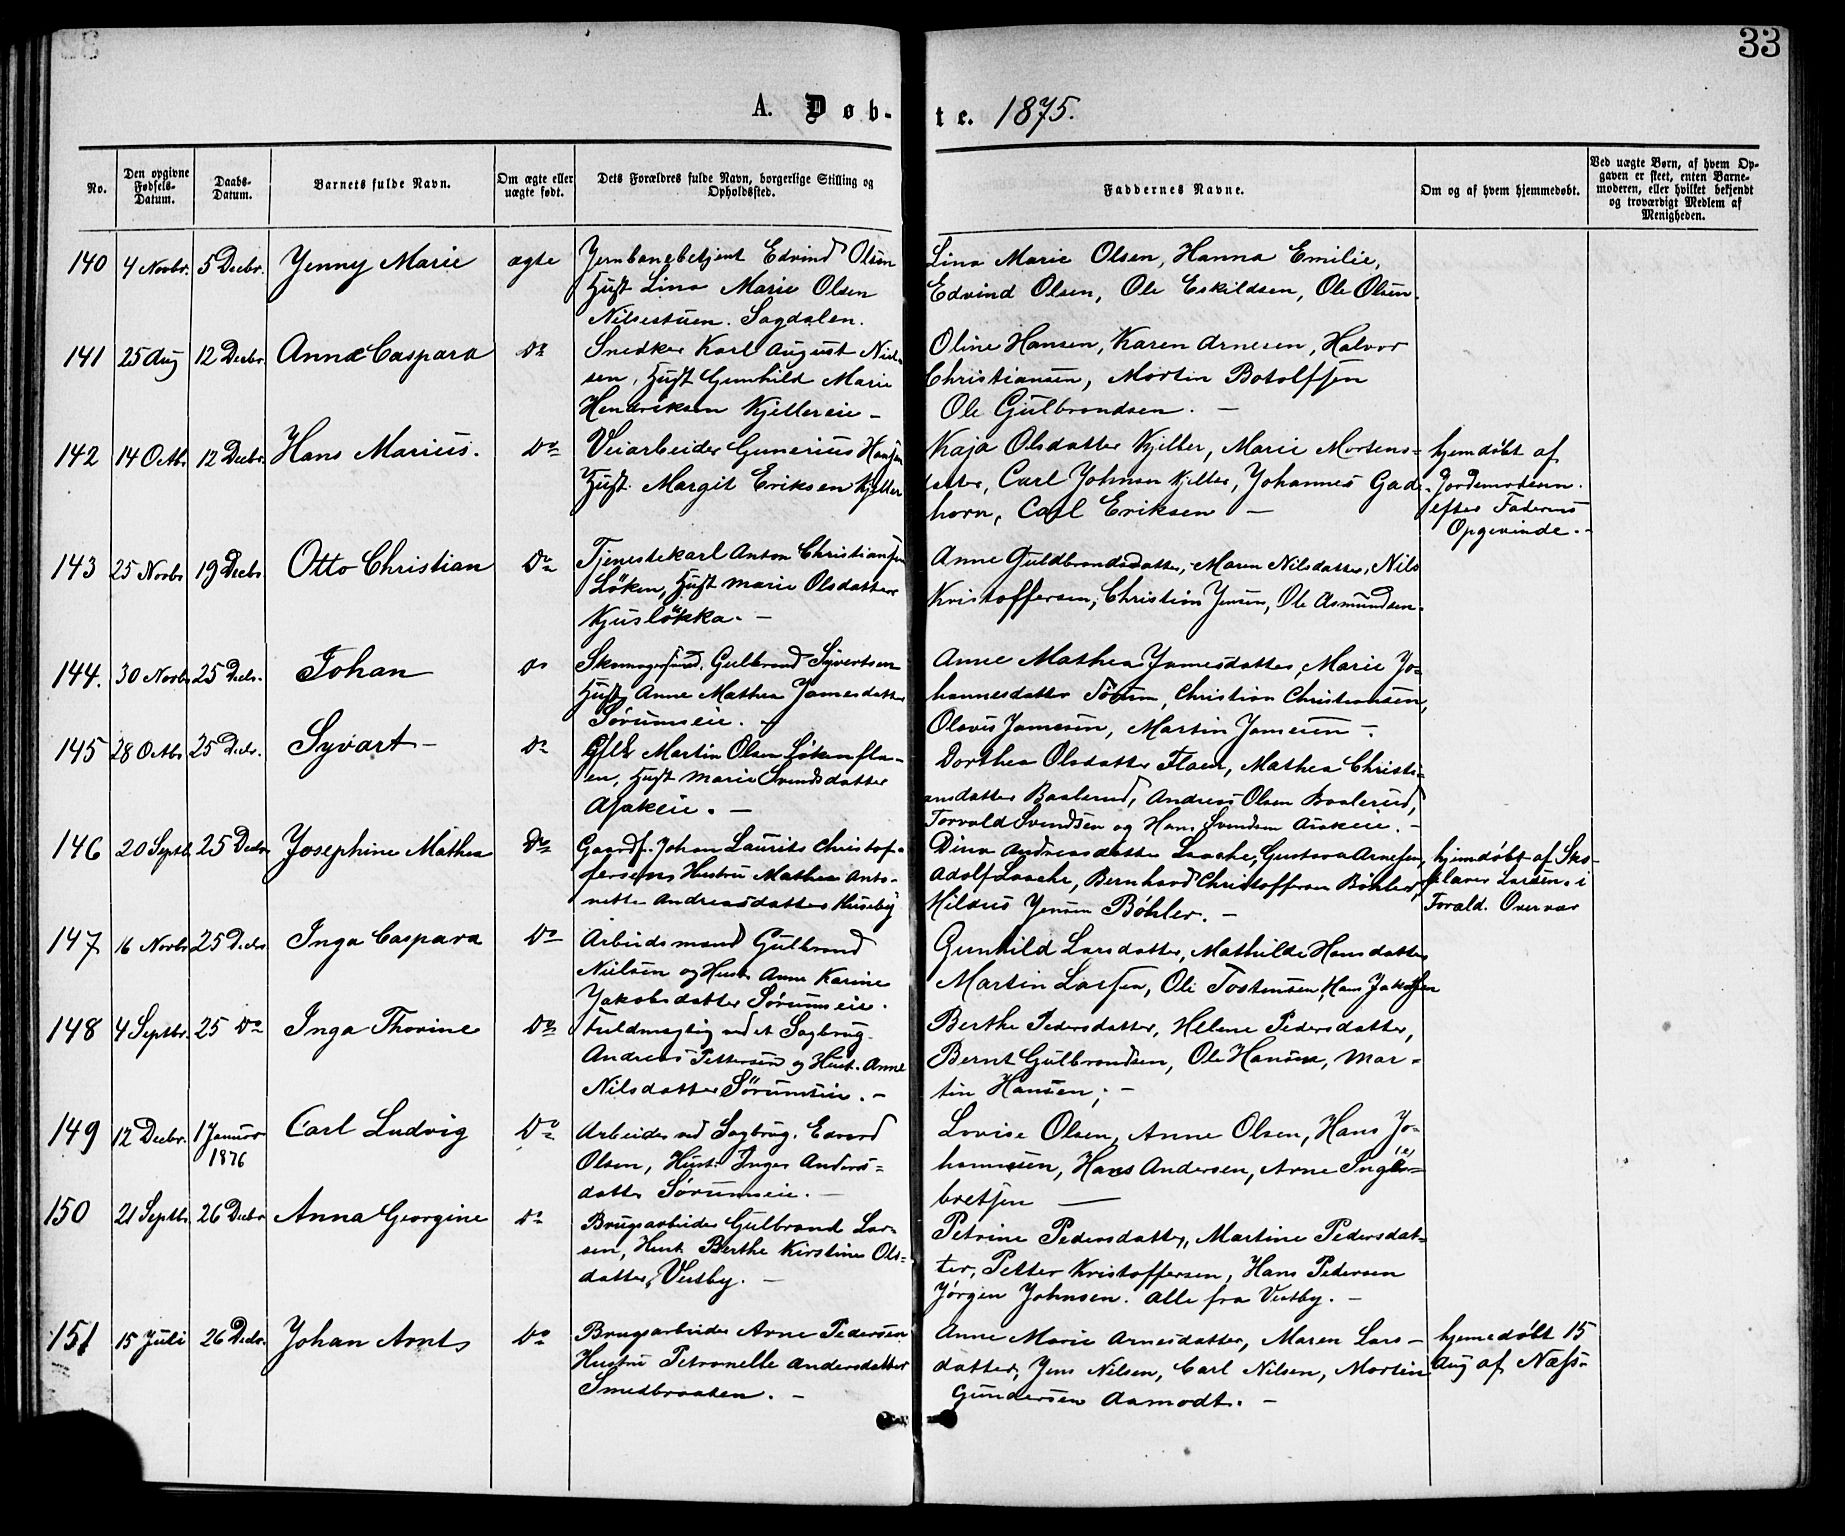 33
A. Døb-te. 1875.
No.
Den opgivne Fødsels-Datum.
Daabs-Datum.
Barnets fulde Navn.
Om ægte eller uægte født.
Dets Forældres fulde Navn, borgerlige Stilling og Opholdssted.
Faddernes Navne.
Om og af hvem hjemmedøbt.
Ved uægte Børn, af hvem Op-
gaven er skeet, enten Barne-
moderen, eller hvilket bekjendt
og troværdigt Medlem af
Menigheden.
140 4 Novbr. 5 Decbr. Jenny Marie ægte Jernbanebetjent Edvind Olsen
Hust Lina Marie Olsen
Nilsestuen. Sagdalen.
Lina Marie Olsen, Hanna Emilie,
Edvind Olsen, Ole Eskildsen, Ole Olsen.
141 25 Aug 12 Decbr Anna Caspara Do Snedker Karl August Niel-
sen, Hust Gunhild Marie
Hendriksen Kjellereie -
Oline Hansen, Karen Arnesen, Halvor
Christiansen, Morten Botolfsen
Ole Gulbrandsen. -
142 14 Octbr 12 Decbr. Hans Marius. Do Veiarbeider Gunerius Hansen
Hust. Margit Eriksen Kjeller
Kaja Olsdatter Kjeller, Marie Mortens-
datter, Carl Johnsen Kjeller, Johannes Gad-
horn, Carl Eriksen -
hjemdøbt af
Jordemoderen
efter Faderens
Opgivende. -
143 25 Novbr 19 Decbr Otto Christian Do Tjenestekarl Anton Christiansen
Löken, Hust Marie Olsdatter
Kjuslökka. -
Anne Guldbrandsdatter, Maren Nilsdatter, Nils
Kristoffersen, Christian Jensen, Ole Asmundsen.
144. 30 Novbr 25 Decbr. Johan Do Gulbrand Syvertsen
Hust Anne Mathea Jamesdatter
Sørumseie. -
Anne Mathea Jamesdatter, Marie Jo-
hannesdatter Sörum, Christian Christiansen,
Olavus Jamesen, Martin Jamesen -
145 28 Octbr 25 Decbr. Syvart - Do Martin Olsen Lökenfla-
en, Hust Marie Svendsdatter
Asakeie. -
Dorthea Olsdatter Flaen, Mathea Christi-
ansdatter Baalerud, Andreas Olsen Baalerud,
Torvald Svendsen og Hans Svendsen Asakeie. -
146 20 Septb. 25 Decbr Josephine Mathea Do Gaardf. Johan Laurits Christof-
fersen, Hustru Mathea Anto-
nette Andreasdatter Huseby
Dina Andreasdatter Laache, Gustava Arnesen,
Adolf Laache, Bernhard Christoffersen Böhler,
Hilmis Jensen Böhler. -
hjemdøbt af Sko-
Larsen i
Foræld. Overvær
147 16 Novbr 25 Decbr Inga Caspara Do Arbeidsmand Gulbrand
Nielsen og Hust. Anne Karine
Jakobsdatter Sørumseie.
Gunhild Larsdatter, Mathilde Hansdatter
Martin Larsen, Ole Tostensen, Hans Jakobsen
148 4 Septbr. 25 Do Inga Thorine Do Fuldmægtig ved et Sagbrug
Andreas Pettersen og Hust. Anne
Nilsdatter Sörumseie. -
Berthe Pedersdatter, Helene Pedersdatter,
Bernt Gulbrandsen, Ole Hansen, Mar-
tin Hansen, -
149 12 Decbr. 1 Januar 1876 Carl Ludvig Do Arbeider ved Sagbrug. Edvard
Olsen, Hust. Inger Anders-
datter Sørumseie. -
Lovise Olsen, Anne Olsen, Hans Jo-
hannesen, Hans Andersen, Arne Inge-
bretsen -
150 21 Septbr. 26 Decbr Anna Georgine Do Brugsarbeider Gulbrand Lar-
sen, Hust. Berthe Kirstine Ols-
datter, Vestby. -
Petrine Pedersdatter, Martine Pedersdat-
ter, Petter Kristoffersen, Hans Pedersen
Jörgen Johnsen. Alle fra Vestby. -
151 15 Juli 26 Decbr. Johan Arnt Do Brugsarbeider Arne Pedersen
Hustru Petronelle Andersdatter
Smedbraaten. -
Anne Marie Arnesdatter, Maren Lars-
datter, Jens Nilsen, Carl Nilsen, Morten
Gundersen Aamodt. -
hjemdøbt 15
Aug af Næss-